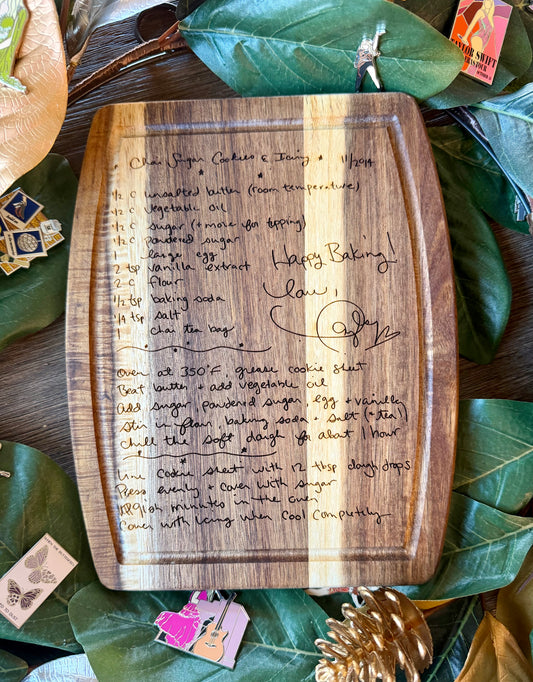 * Chai Sugar Cookies & Icing * 11/2014
1/2 c unsalted butter (room temperature)
1/2 c vegetable oil
1/2 c sugar (+ more for topping)
1/2 c powdered sugar
1 large egg
2 tsp vanilla extract
2 c flour
1/2 tsp baking soda
1/4 tsp salt
1 chai tea bag
Happy Baking!
Love,
Taylor
Oven at 350°F, grease cookie sheet
Beat butter + add vegetable oil
Add sugar, powdered sugar, egg + vanilla
stir in flour, baking soda + salt (+ tea!)
Chill the soft dough for about 1 hour
Line cookie sheet with 12 tbsp dough drops
Press evenly + cover with sugar
minutes in the oven
Cover with icing when cool completely
TAYLOR SWIFT